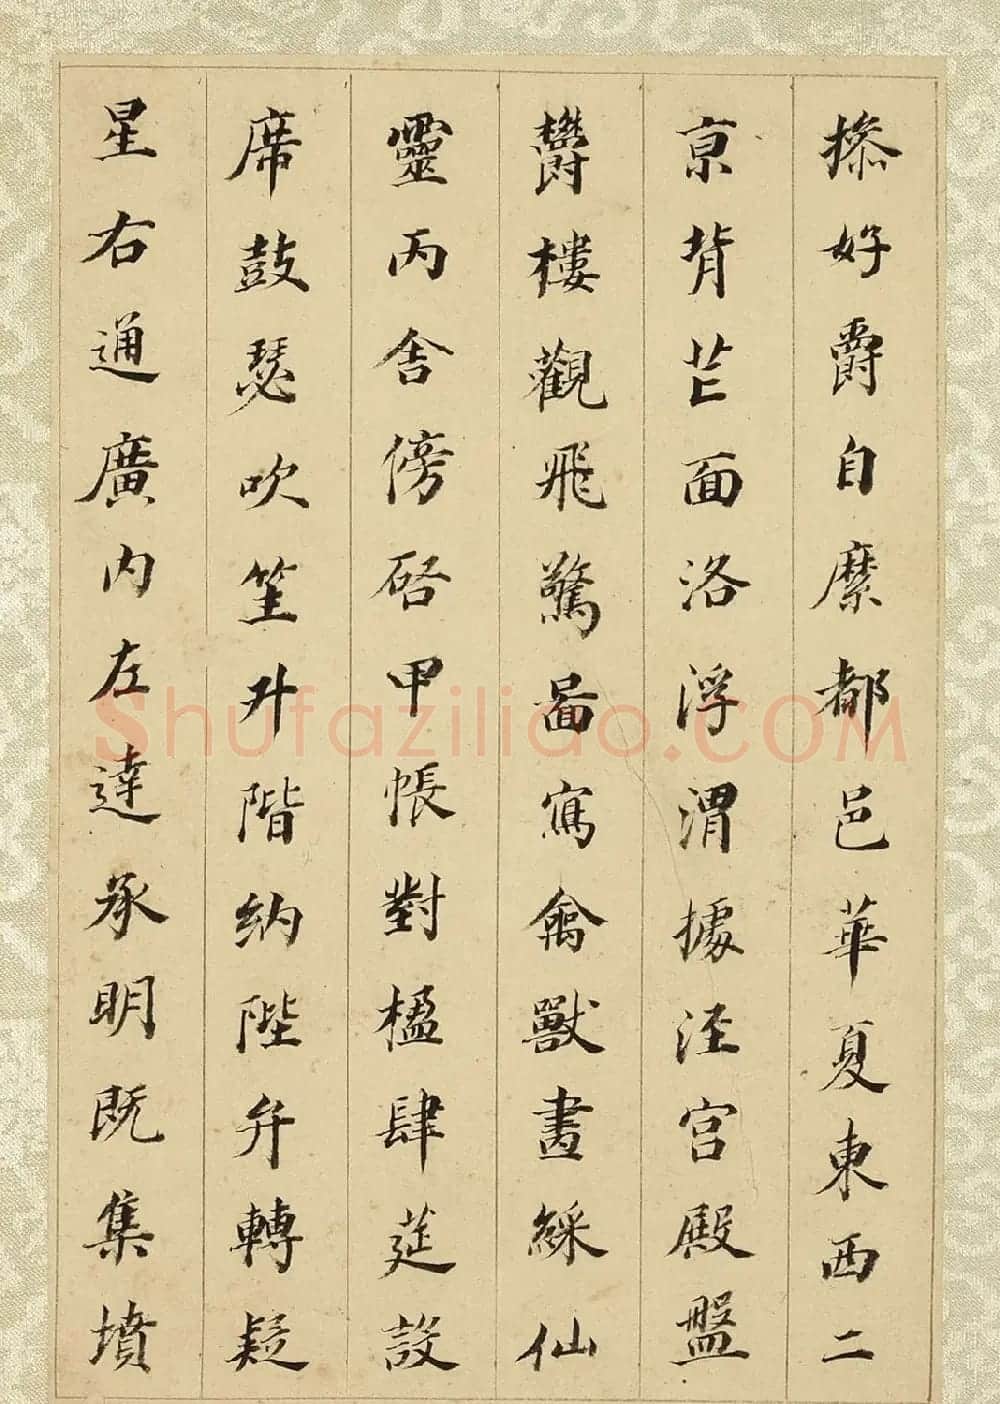 操好爵自縻都邑華夏東西二
京背芒面洛浮渭據涇宮殿盤
鬱樓觀飛驚圖寫禽獸畫綵仙
靈丙舍傍啓甲帳對楹肆筵設
席鼓瑟吹笙升階納陛弁轉疑
星右通廣內左達承明既集墳
Shufaziliao.COM